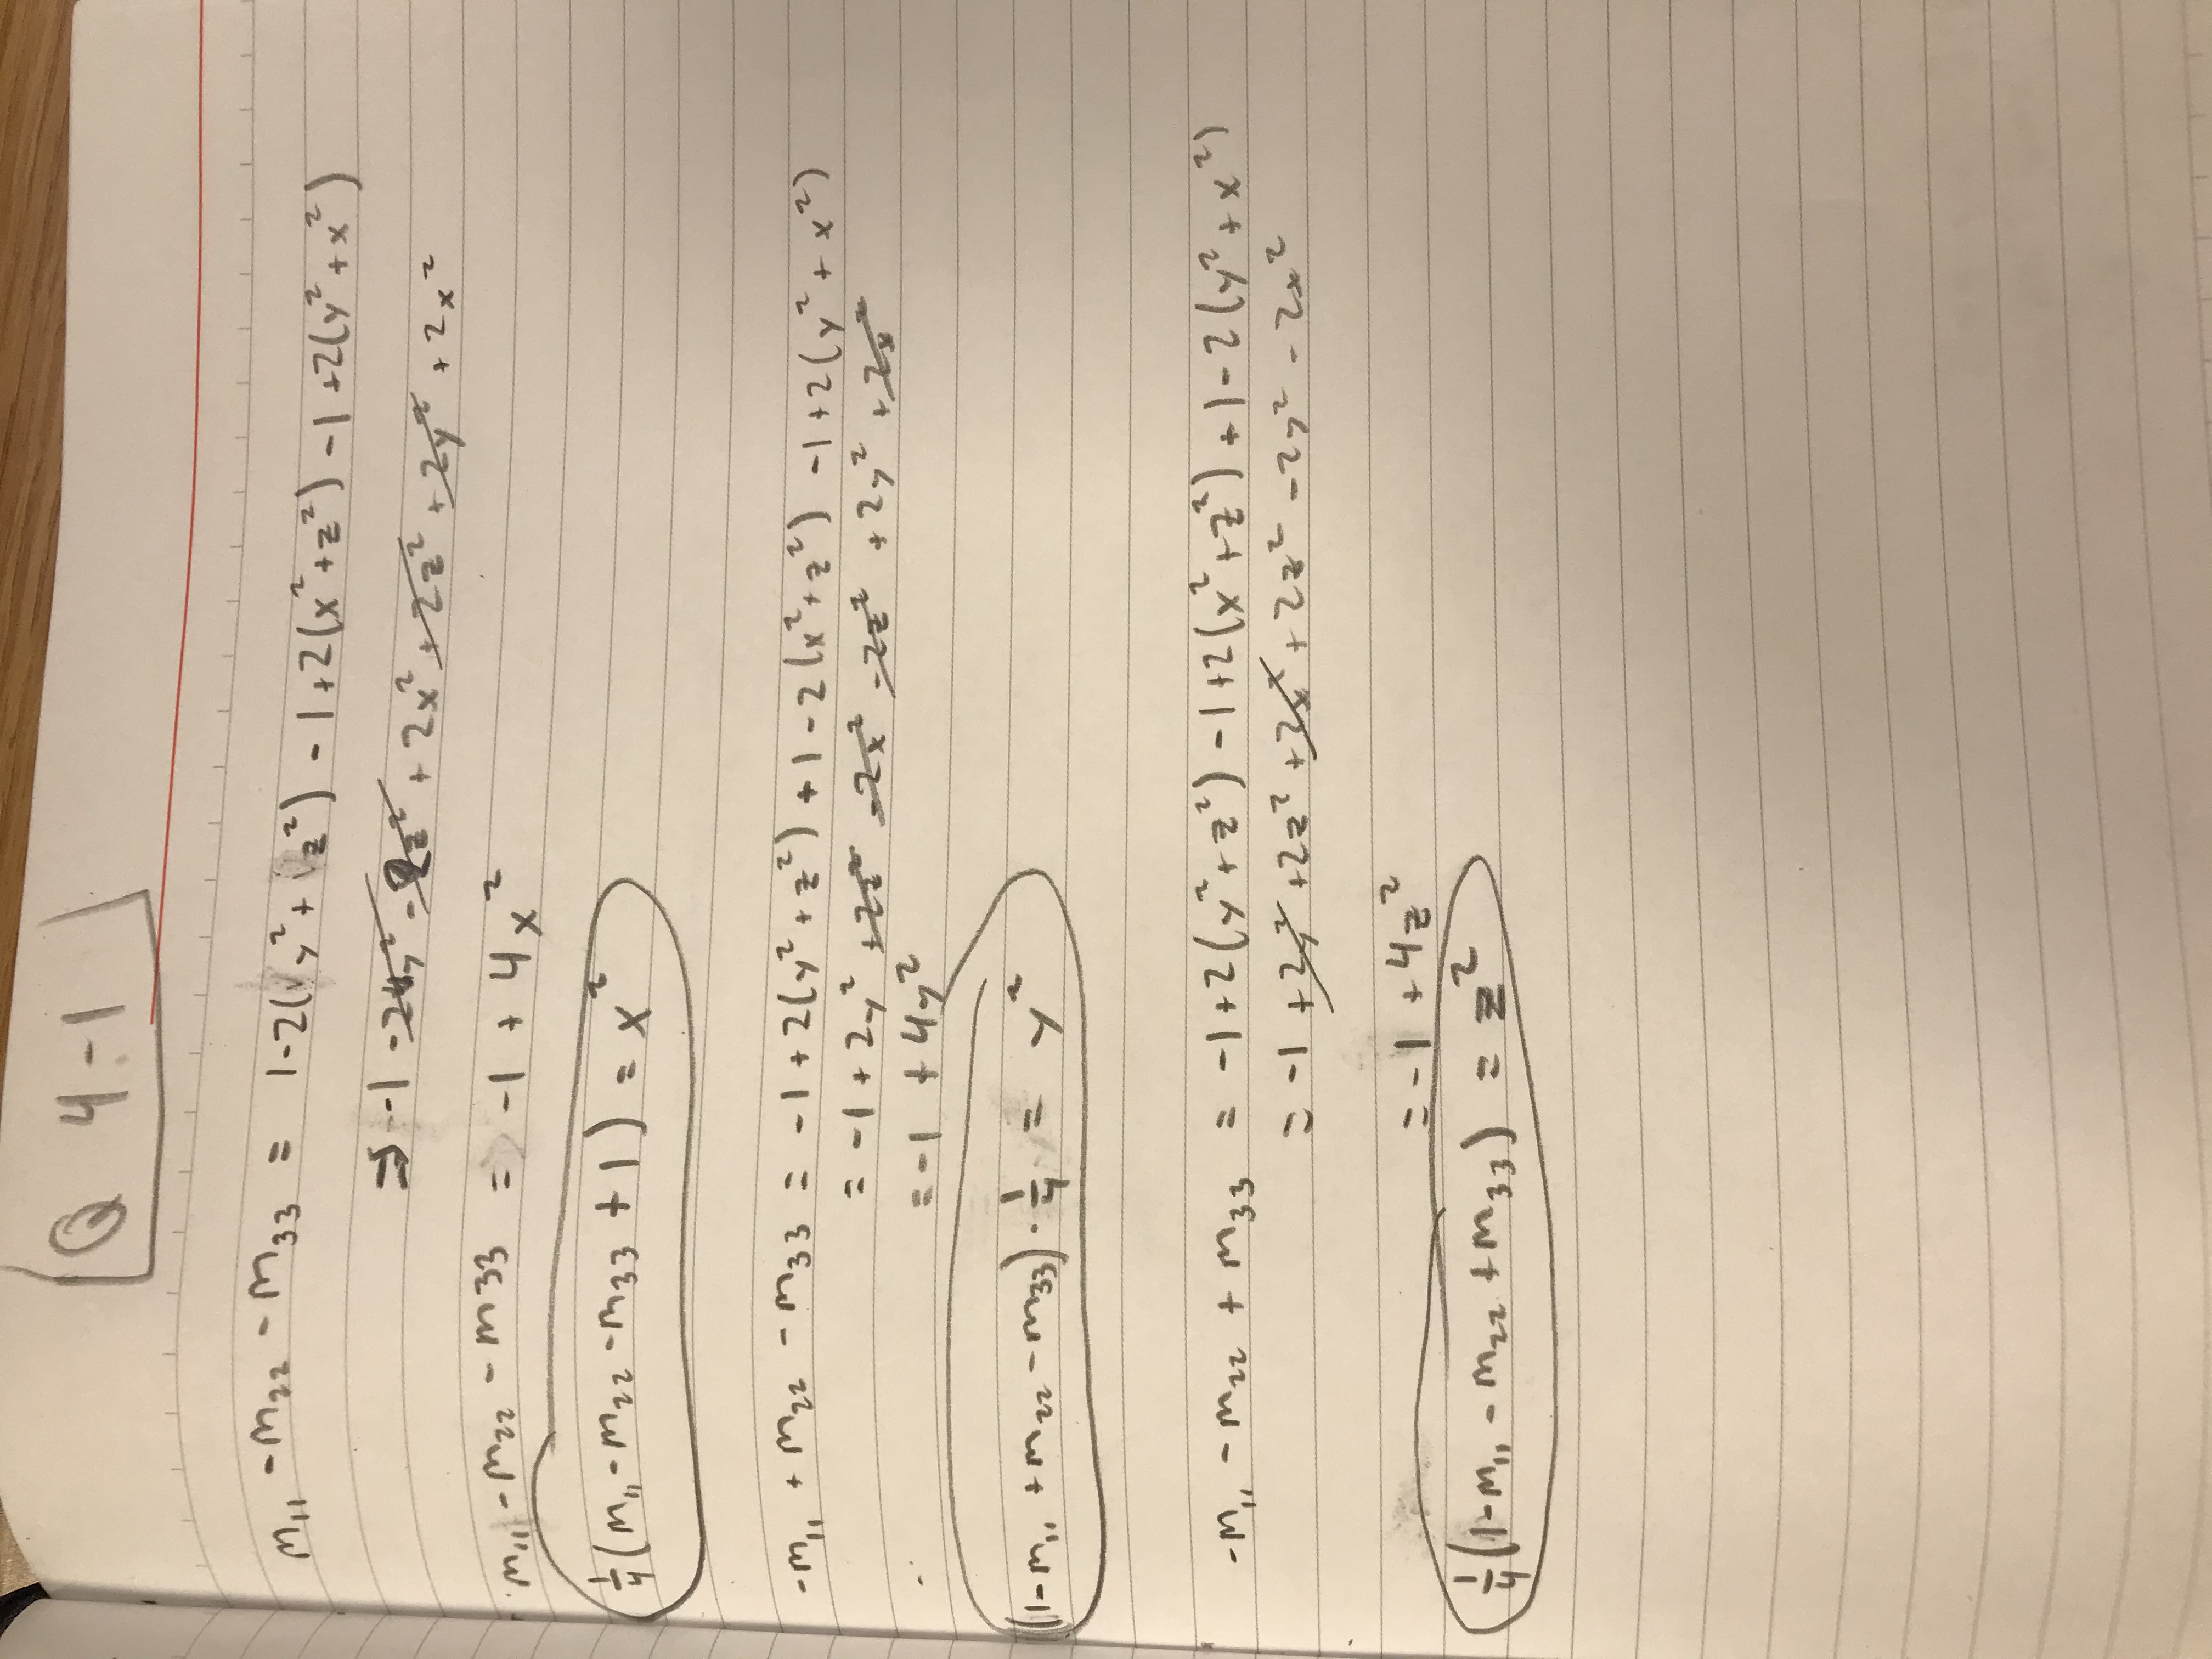 Q 4-1
m₁₁ - m₂₂ - m₃₃ = 1-2(y²+z²) - 1+2(x²+z²) - 1+2(y²+x²)
⇒ -1 -2y² -2z² + 2x² +2z² +2y² +2x²
m₁₁ - m₂₂ - m33 = -1 + 4x²
¼(m₁₁ - m₂₂ - m₃₃ + 1) = x²
-m₁₁ + m₂₂ - m₃₃ = -1+2(y²+z²) + 1-2(x²+z²) -1+2(y²+x²)
= -1+2y² +2z² -2x² -2z² +2y² +2x²
= -1 + 4y²
(1-m₁₁ + m₂₂ - m₃₃) · ¼ = y²
-m₁₁ - m₂₂ + m₃₃ = -1+2(y²+z²) -1+2(x²+z²) +1-2(y²+x²)
= -1 +2y² +2z² +2x² +2z² -2y² -2x²
= -1 + 4z²
¼(1-m₁₁ - m₂₂ + m₃₃) = z²